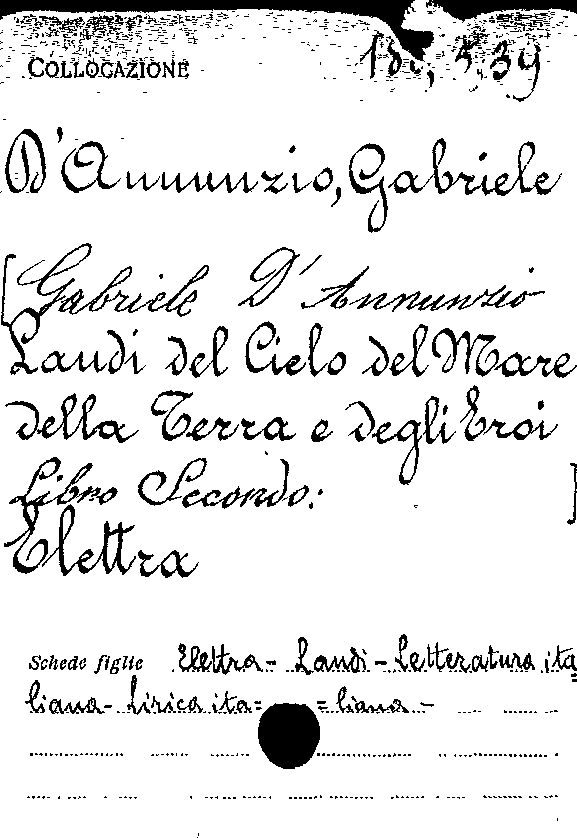 COLLOCAZIONE 5, 39
D'Annunzio, Gabriele
[Gabriele D'Annunzio
Laudi del Cielo del Mare
della Terra e degli Eroi
Libro Secondo: ]
Elettra
Schede figlie Elettra - Laudi - Letteratura ita
liana - Lirica ita= =liana -